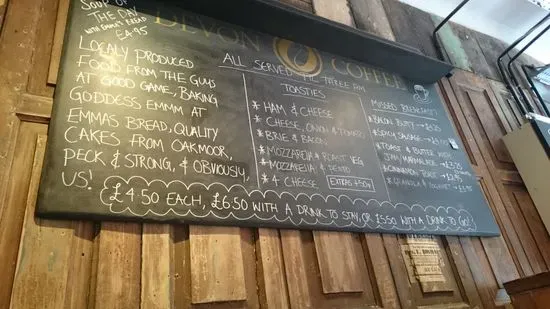 SOUP OF
THE DAY
WITH EMMA'S BREAD
£4.95
DEVON COFFEE
LOCALLY PRODUCED
FOOD FROM THE GUYS
AT GOOD GAME, BAKING
GODDESS EMMM AT
EMMAS BREAD, QUALITY
CAKES FROM OAKMOOR,
PECK & STRONG, & OBVIOUSLY,
US!
ALL SERVED TIL THREE PM
TOASTIES
* HAM & CHEESE
* CHEESE, ONION & TOMATO
* BRIE & BACON
* MOZZARELLA & ROAST VEG
* MOZZARELLA & PESTO
* 4 CHEESE
EXTRAS +50p
MISSED BREAKFAST?
* BACON BUTTY
* SPICY SAUSAGE
* TOAST & BUTTER WITH
JAM/MARMALADE
* CINNAMON TOAST
* GRANOLA & YOGHURT
£4.50 EACH, £6.50 WITH A DRINK TO STAY, OR £5.50 WITH A DRINK TO GO!